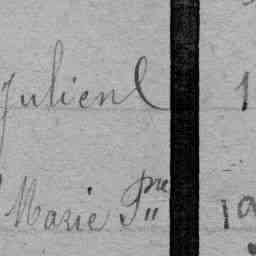 Julien 1
Marie Pne 19